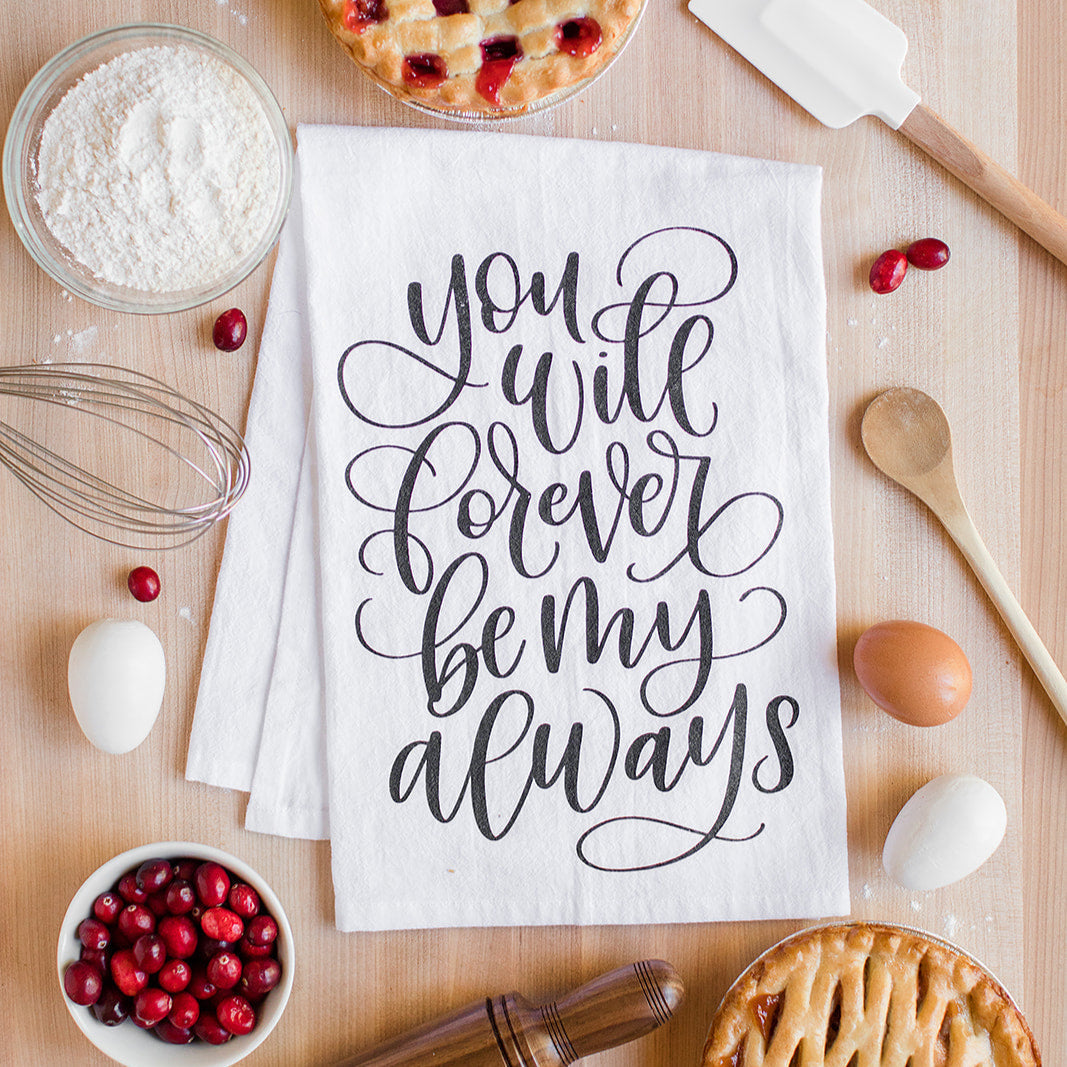 you
will
forever
be my
always